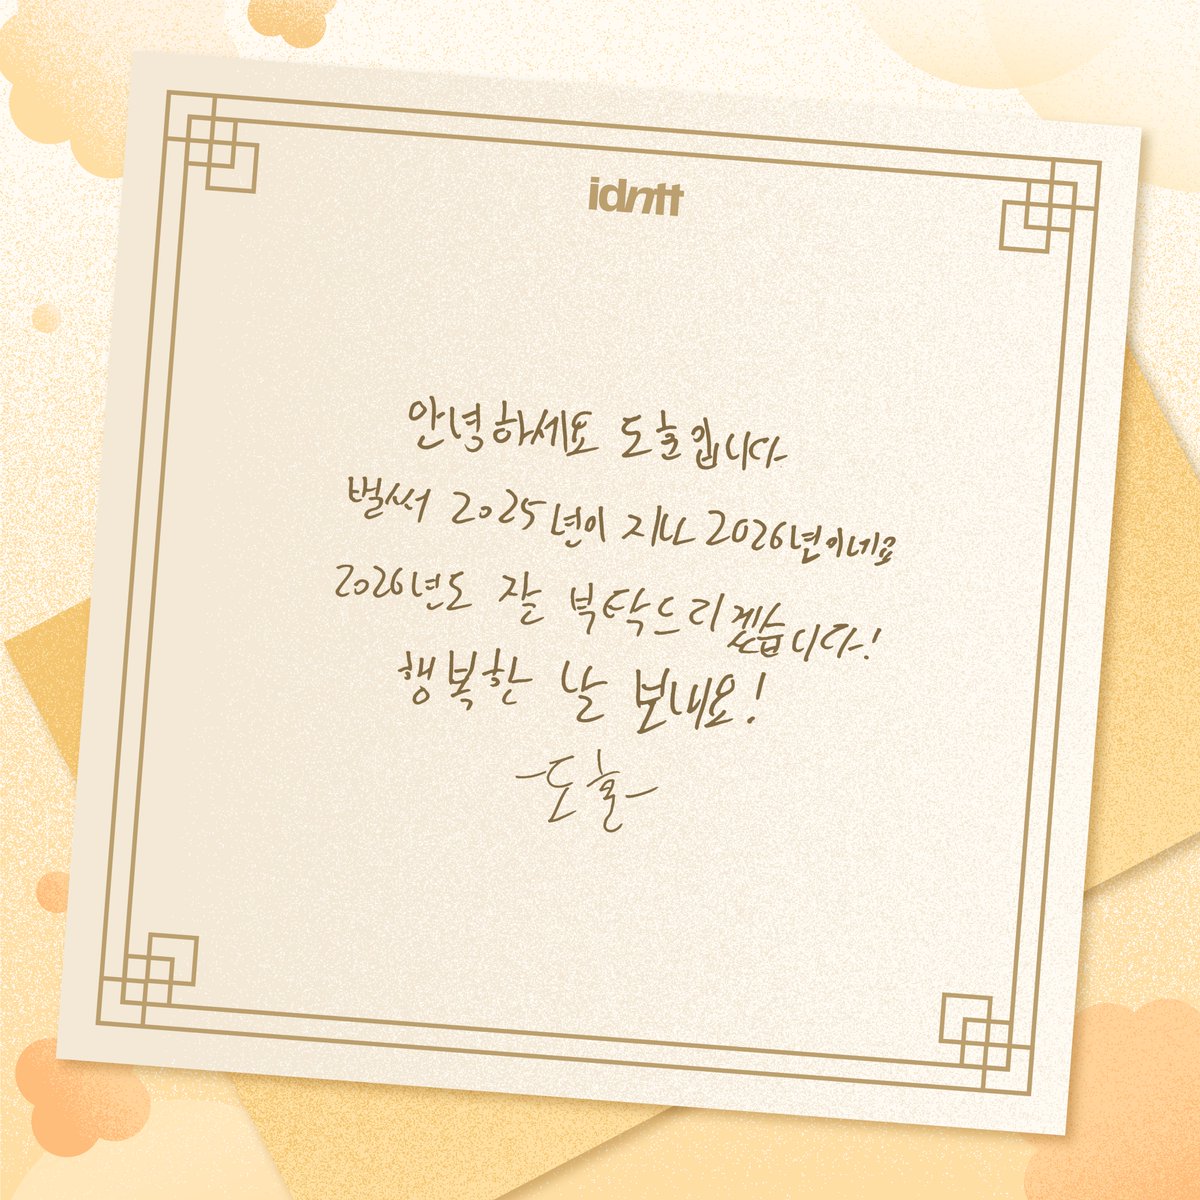 idntt
안녕하세요 도훌입니다
벌써 2025년이 지나 2026년이네요
2026년도 잘 부탁드리겠습니다!
행복한 날 보내요!
-도훌-